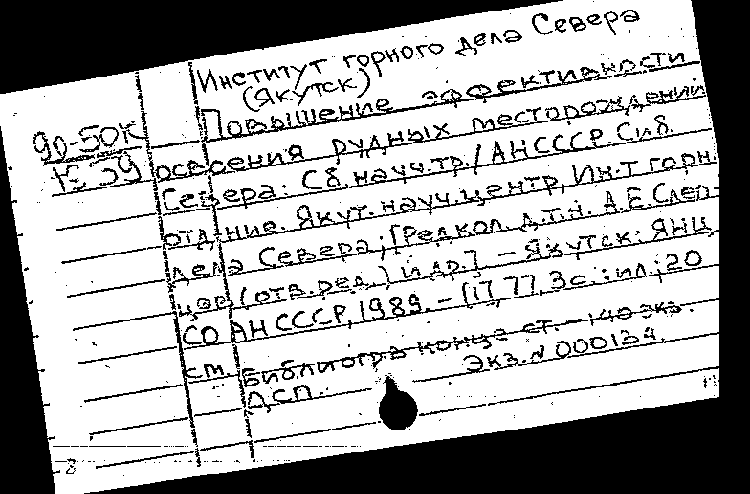 Институт горного дела Севера
(Якутск)
Повышение эффективности
90-50К
освоения рудных месторождений
Севера: Сб. науч. тр. / АН СССР. Сиб.
отд-ние. Якут. науч. центр, Ин-т горн.
дела Севера; [Редкол. д.т.н. А.Е. Слеп-
цов (отв. ред.) и др.] – Якутск: ЯНЦ
СО АН СССР, 1989. – 177, 3 с.: ил; 20
см.
Библиогр в конце ст. – 140 экз.
ДСП. Экз. № 000134.
8